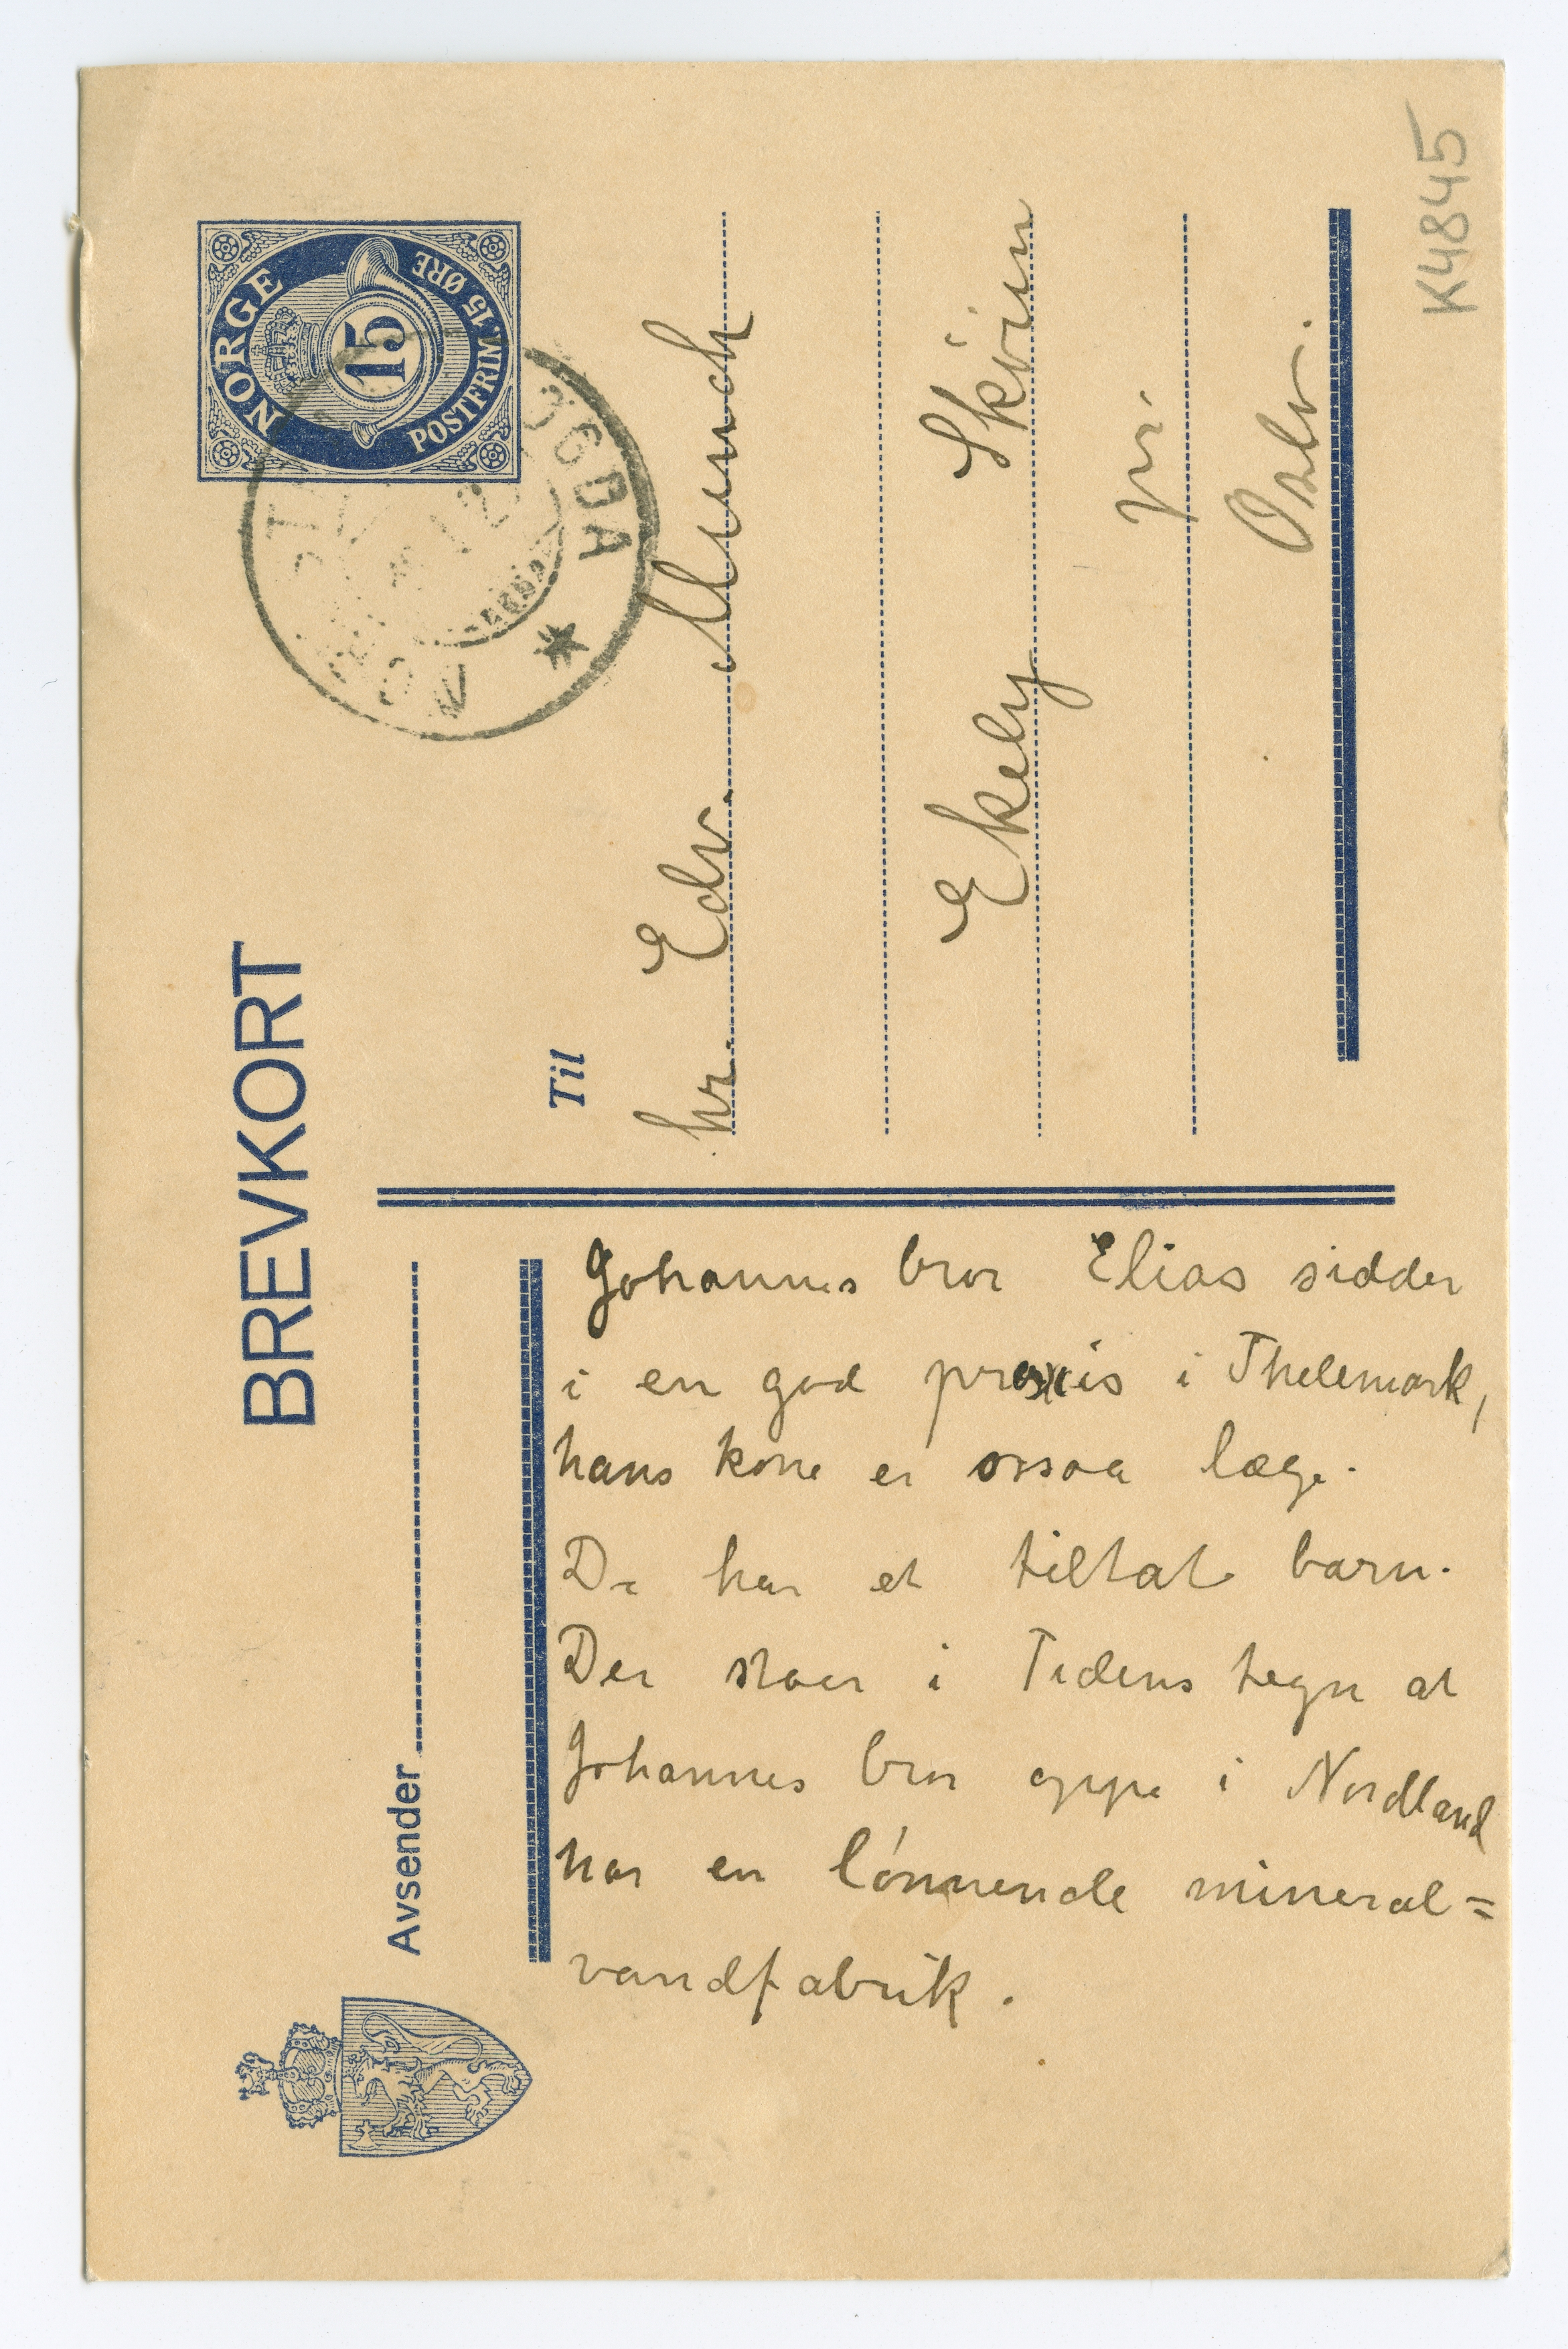 BREVKORT
NORGE
15
POSTFRIM. 15 ØRE
Avsender
Til
hr. Edv. Munch
Ekely Sköien
pr.
Oslo.
K4845
Johannes bror Elias sidder
i en god praxis i Thelemark,
hans kone er ossaa læge.
De har et tiltat barn.
Der staar i Tidens tegn at
Johannes bror oppe i Nordland
har en lönnende mineral=
vandfabrik.